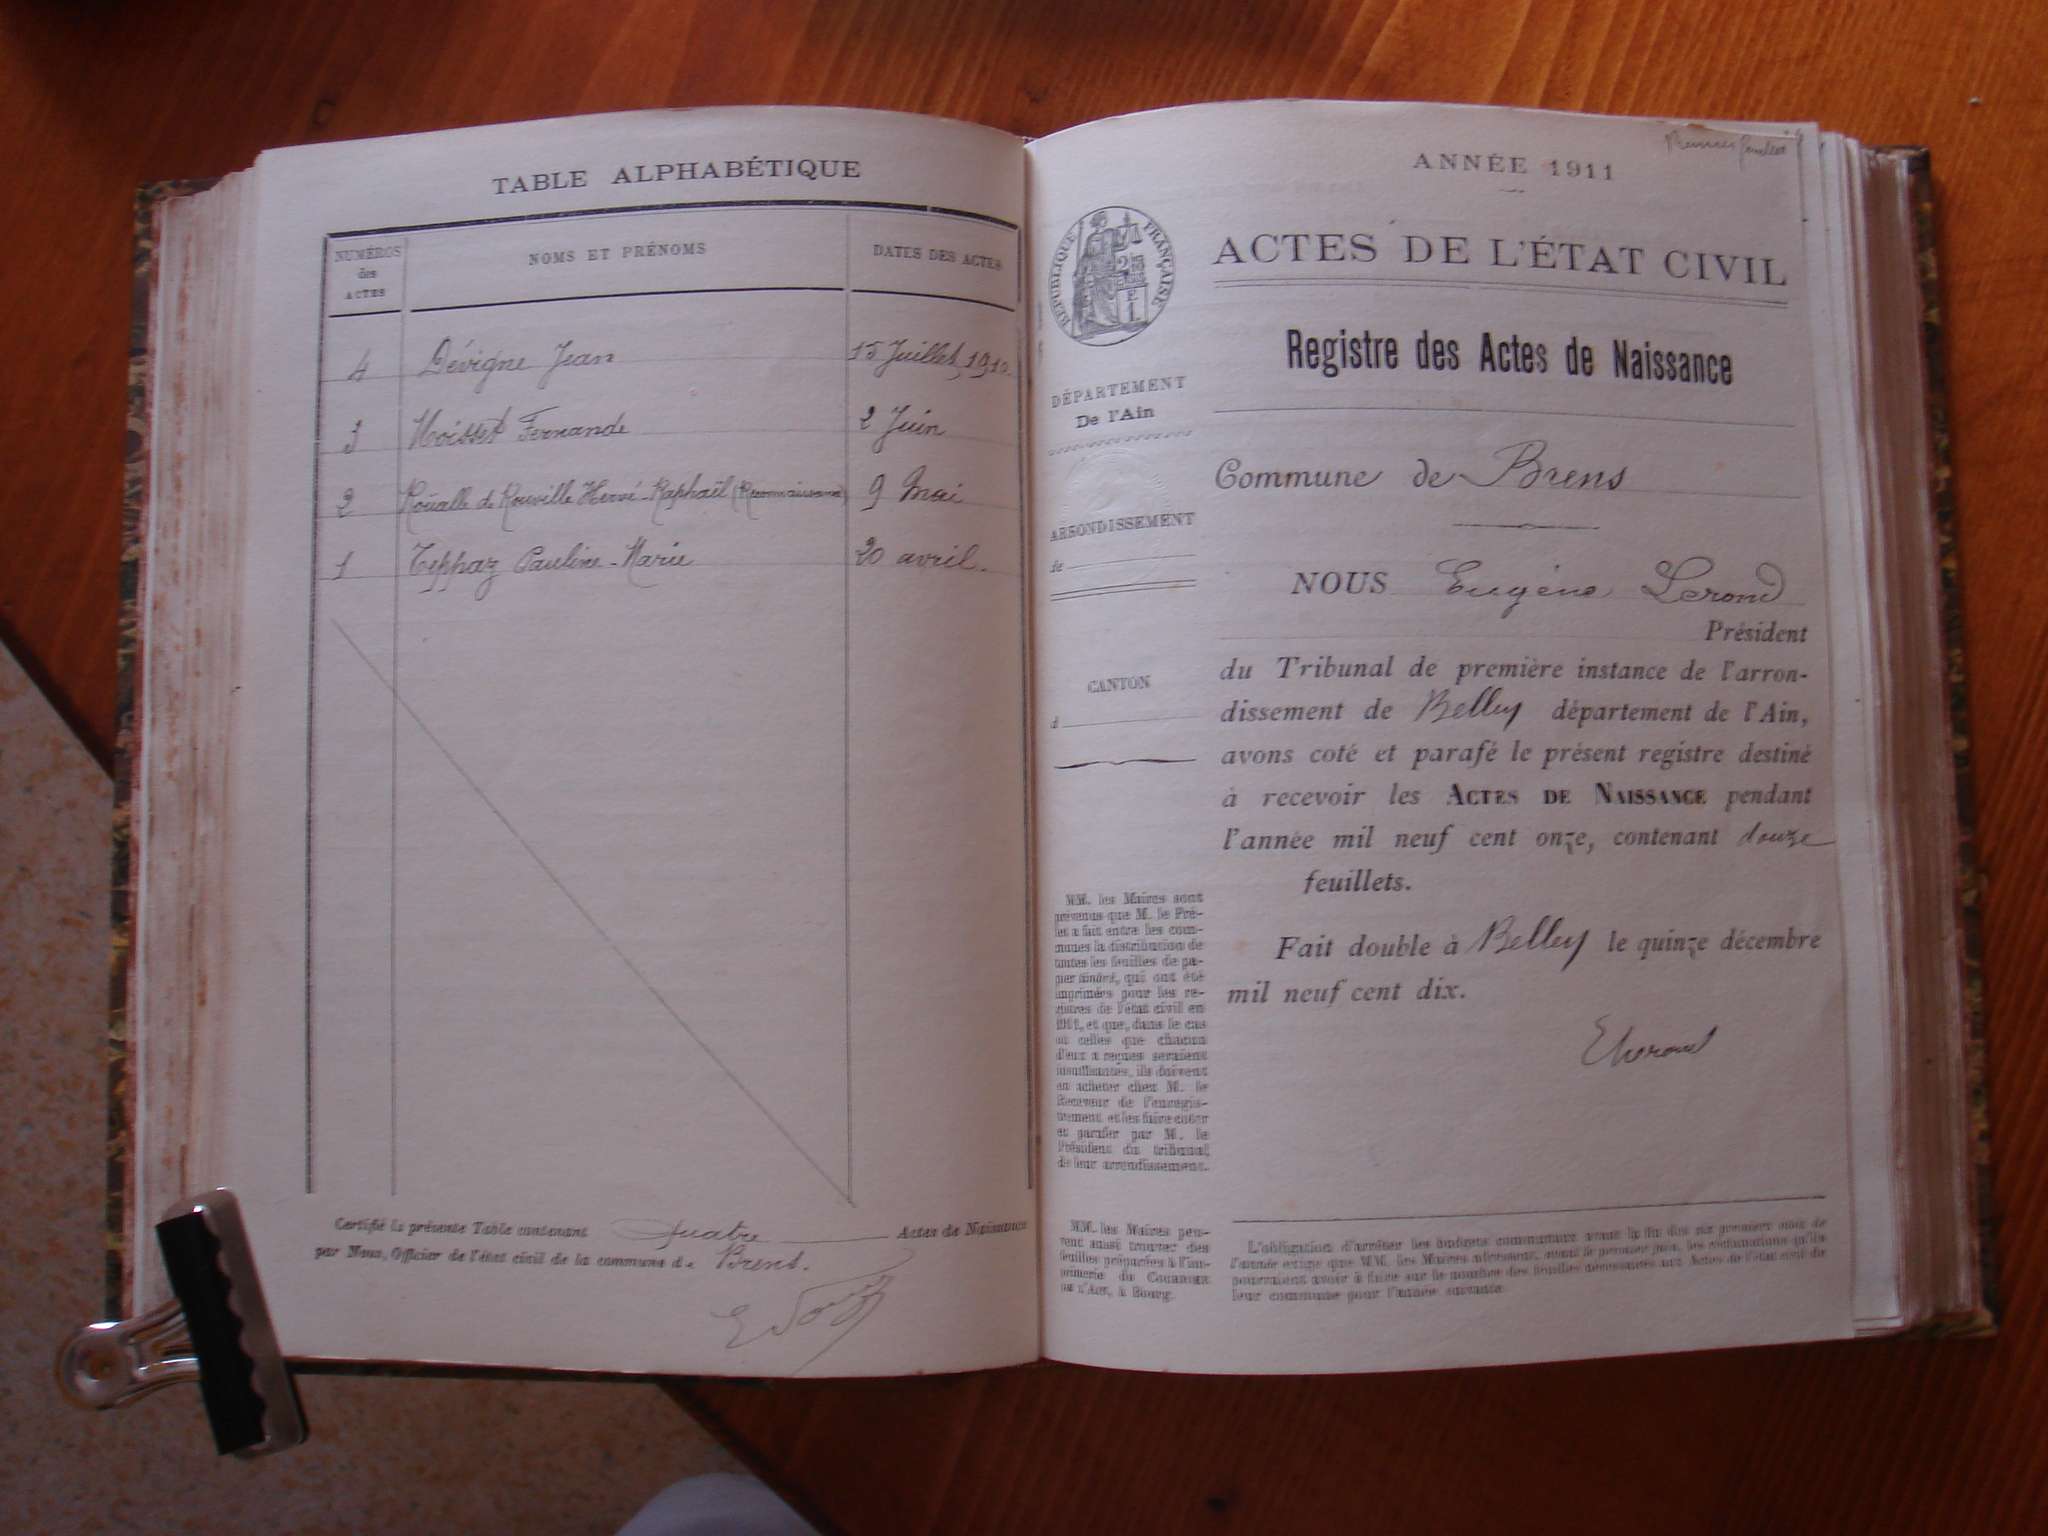 TABLE ALPHABÉTIQUE
NUMÉROS des ACTES
NOMS ET PRÉNOMS
DATES DES ACTES
4 Dévigne Jean 15 Juillet 1910
3 Moisset Fernande 2 Juin
2 Roualle de Rouville Hervé-Raphaël (Reconnaissance) 9 Mai
1 Teppaz Pauline-Marie 20 avril.
Certifié la présente Table contenant quatre Actes de Naissance
par Nous, Officier de l'état civil de la commune de Brens.
ANNÉE 1911
RÉPUBLIQUE FRANÇAISE
ACTES DE L'ÉTAT CIVIL
Registre des Actes de Naissance
DÉPARTEMENT
De l'Ain
ARRONDISSEMENT
de
CANTON
d
MM. les Maires sont
prévenus que M. le Pré-
fet a fait entre les com-
munes la distribution de
toutes les feuilles de pa-
pier timbré, qui ont été
imprimées pour les re-
gistres de l'état civil en
1911, et que, dans le cas
où celles que chacun
d'eux a reçues seraient
insuffisantes, ils doivent
en acheter chez M. le
Receveur de l'enregis-
trement et les faire coter
et parafer par M. le
Président du tribunal
de leur arrondissement.
MM. les Maires peu-
vent aussi trouver des
feuilles préparées à l'im-
primerie du COURRIER
DE L'AIN, à Bourg.
Commune de Brens
NOUS Eugène Lerond
Président
du Tribunal de première instance de l'arron-
dissement de Belley département de l'Ain,
avons coté et parafé le présent registre destiné
à recevoir les ACTES DE NAISSANCE pendant
l'année mil neuf cent onze, contenant douze
feuillets.
Fait double à Belley le quinze décembre
mil neuf cent dix.
L'obligation d'arrêter les budgets communaux avant la fin des six premiers mois de
l'année exige que MM. les Maires adressent, avant le premier juin, les réclamations qu'ils
pourraient avoir à faire sur le nombre des feuilles nécessaires aux Actes de l'état civil de
leur commune pour l'année suivante.